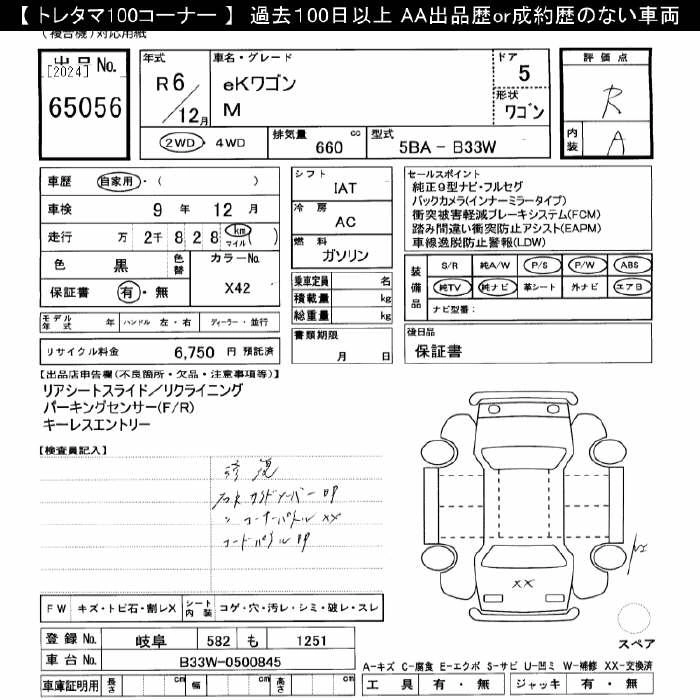 【 トレタマ100コーナー 】 過去100日以上 AA出品歴or成約歴のない車両
(複合機)対応用紙
出品No.
[2024]
65056
年式
R6/12月
車名・グレード
eKワゴン
M
ドア
5
形状
ワゴン
2WD・4WD
排気量 660 cc
型式 5BA - B33W
評価点
R
内装 A
車歴 自家用・( )
車検 9年 12月
走行 万 2千 8 2 8 km マイル ( )
色 黒 色替
カラーNo. X42
保証書 有・無
モデル年式 年 ハンドル 左・右 ディーラー・並行
リサイクル料金 6,750 円 預託済
シフト IAT
冷房 AC
燃料 ガソリン
乗車定員 名
積載量 kg
総重量 kg
書類期限
月 日
セールスポイント
純正9型ナビ・フルセグ
バックカメラ(インナーミラータイプ)
衝突被害軽減ブレーキシステム(FCM)
踏み間違い衝突防止アシスト(EAPM)
車線逸脱防止警報(LDW)
装備品
S/R 純A/W P/S P/W ABS
純TV 純ナビ 革シート 外ナビ エアB
ナビ型番:
後日品
保証書
【出品店申告欄(不良箇所・欠品・注意事項等)】
リアシートスライド/リクライニング
パーキングセンサー(F/R)
キーレスエントリー
【検査員記入】
修復
コーナーパネル XX
XX
FW キズ・トビ石・割レX
シート内装 コゲ・穴・汚レ・シミ・破レ・スレ
登録No. 岐阜 582 も 1251
車台No. B33W-0500845
車庫証明用 長さ cm 幅 cm 高さ cm
スペア
A-キズ C-腐食 E-エクボ S-サビ U-凹ミ W-補修 XX-交換済
工具 有・無 ジャッキ 有・無